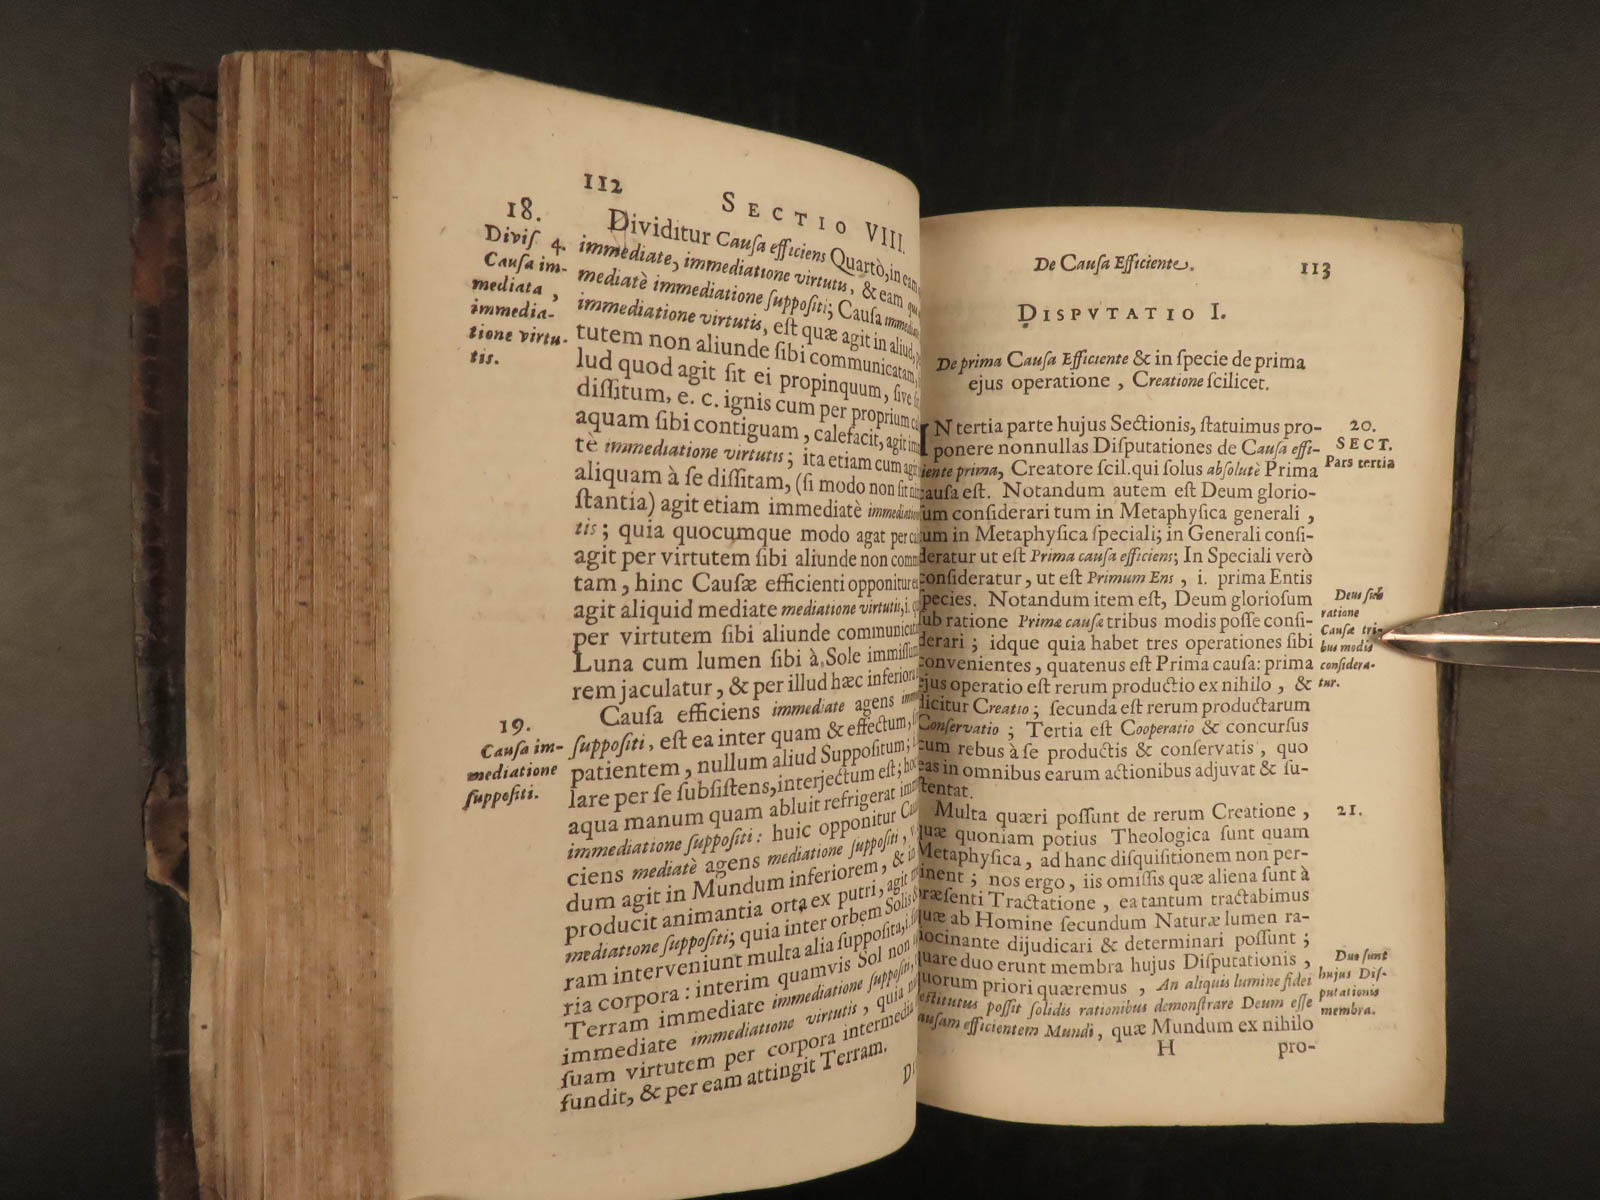 112
SECTIO VIII.
18.
Divis 4.
Causa im-
mediata,
immedia-
tione virtu-
tis.
Dividitur Causa efficiens Quartò, in eam
immediate, immediatione virtutis, & eam
mediatè immediatione suppositi; Causa
immediatione virtutis, est quæ agit in aliud,
tutem non aliunde sibi communicatam,
lud quod agit sit ei propinquum, sive
dissitum, e. c. ignis cum per proprium
aquam sibi contiguam, calefacit, agit
tè immediatione virtutis; ita etiam cum
aliquam à se dissitam, (si modo non sit
stantia) agit etiam immediatè
tis; quia quocumque modo agat per
agit per virtutem sibi aliunde non
tam, hinc Causæ efficienti opponitur
agit aliquid mediate mediatione virtutis, i.
per virtutem sibi aliunde
Luna cum lumen sibi à Sole
rem jaculatur, & per illud hæc
19.
Causa im-
mediatione
suppositi.
Causa efficiens immediate agens
suppositi, est ea inter quam & effectum,
patientem, nullum aliud Suppositum;
lare per se subsistens, interjectum est;
aqua manum quam abluit refrigerat
immediatione suppositi: huic opponitur
ciens mediatè agens mediatione suppositi,
dum agit in Mundum inferiorem, &
producit animantia orta ex putri, agit
mediatione suppositi; quia inter orbem Solis
ram interveniunt multa alia supposita, i.
ria corpora: interim quamvis Sol non
Terram immediate immediatione suppositi,
immediate immediatione virtutis, quia
suam virtutem per corpora intermedia
fundit, & per eam attingit Terram.
De Causa Efficiente.
113
DISPVTATIO I.
De prima Causa Efficiente & in specie de prima
ejus operatione, Creatione scilicet.
20.
SECT.
Pars tertia
IN tertia parte hujus Sectionis, statuimus pro-
ponere nonnullas Disputationes de Causa effi-
ciente prima, Creatore scil. qui solus absolutè Prima
causa est. Notandum autem est Deum glorio-
sum considerari tum in Metaphysica generali,
tum in Metaphysica speciali; in Generali consi-
deratur ut est Prima causa efficiens; In Speciali verò
consideratur, ut est Primum Ens, i. prima Entis
species. Notandum item est, Deum gloriosum
sub ratione Primæ causæ tribus modis posse consi-
derari; idque quia habet tres operationes sibi
convenientes, quatenus est Prima causa: prima
ejus operatio est rerum productio ex nihilo, &
dicitur Creatio; secunda est rerum productarum
Conservatio; Tertia est Cooperatio & concursus
cum rebus à se productis & conservatis, quo
eas in omnibus earum actionibus adjuvat & su-
stentat.
Deus sub
ratione
Causæ tri-
bus modis
considera-
tur.
21.
Multa quæri possunt de rerum Creatione,
quæ quoniam potius Theologica sunt quam
Metaphysica, ad hanc disquisitionem non per-
tinent; nos ergo, iis omissis quæ aliena sunt à
præsenti Tractatione, ea tantum tractabimus
quæ ab Homine secundum Naturæ lumen ra-
tiocinante dijudicari & determinari possunt;
quare duo erunt membra hujus Disputationis,
quorum priori quæremus, An aliquis lumine fidei
destitutus possit solidis rationibus demonstrare Deum esse
causam efficientem Mundi, quæ Mundum ex nihilo
Duo sunt
hujus Dis-
putationis
membra.
H
pro-